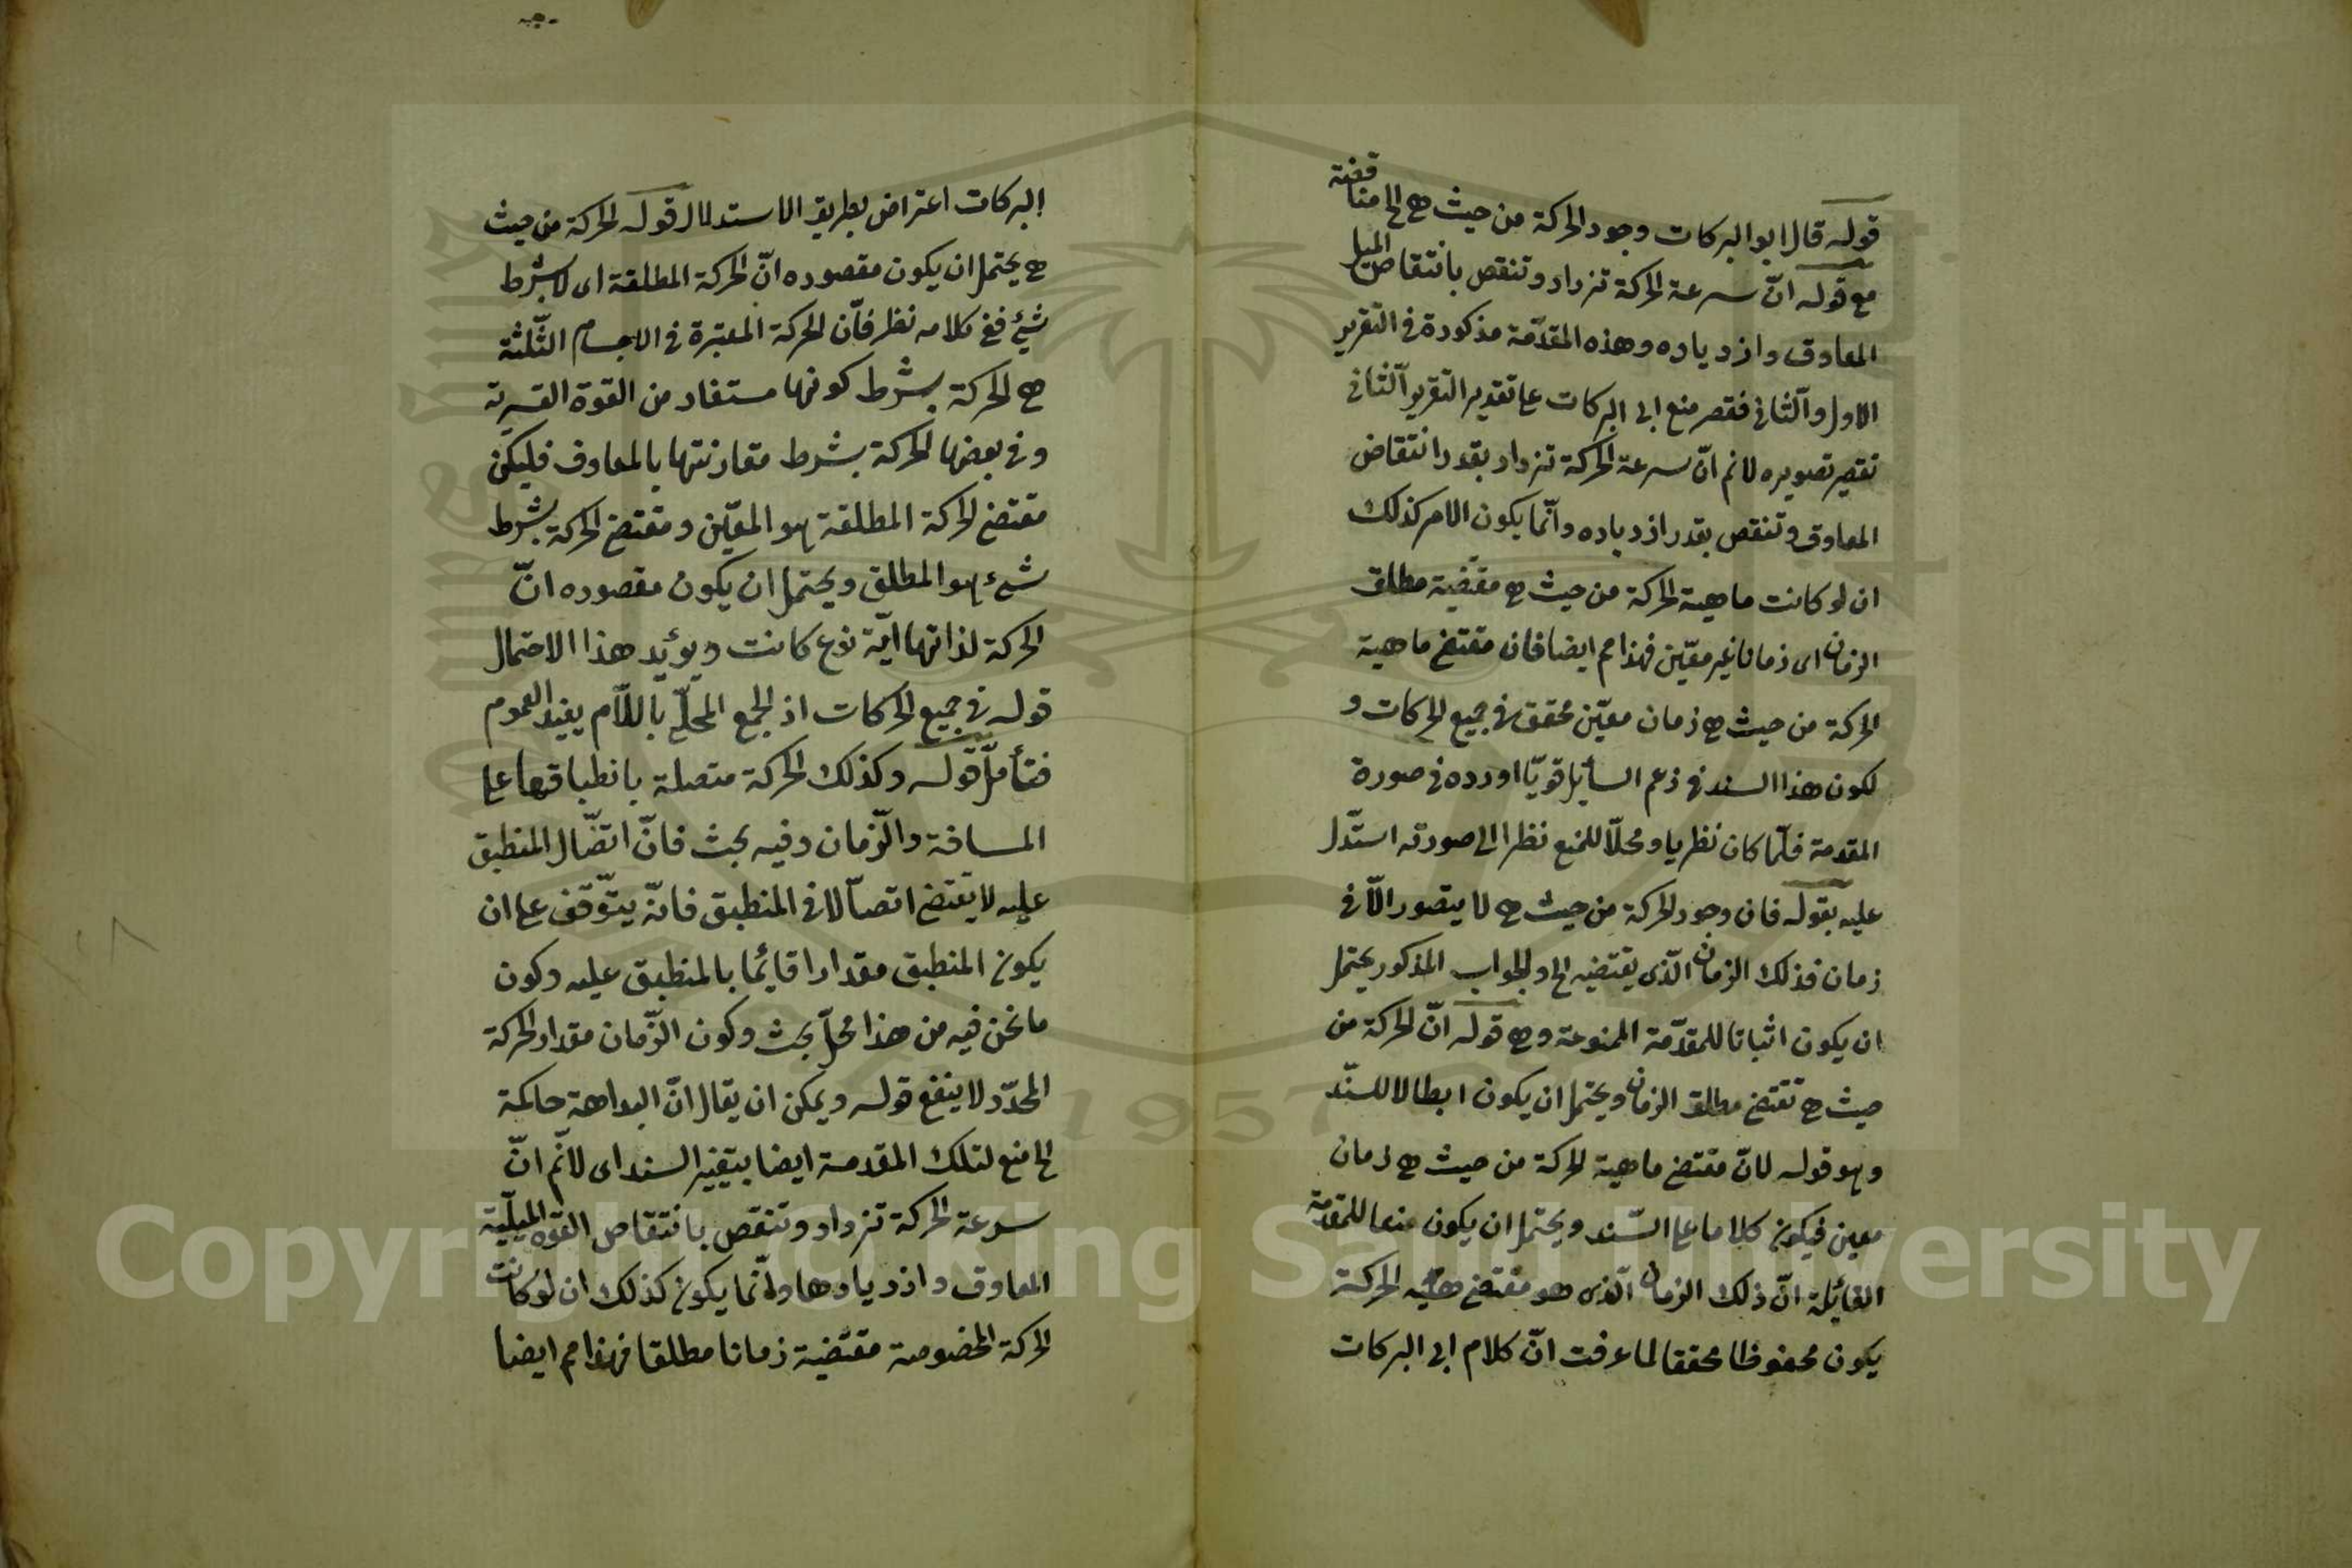 قوله قال ابو البركات وجود الحركة من حيث هى الخ مناقضة
مع قوله انّ سرعة الحركة تزداد وتنقص بانتقاص الميل
المعاوق وازدياده وهذه المقدّمة مذكورة فى التقرير
الاول والثانى فقصر منع ابى البركات على تقدير التقرير الثانى
تقصير تصويره لانم انّ سرعة الحركة تزداد بقدر انتقاض
المعاوق وتنقص بقدر ازدياده وانّما يكون الامر كذلك
ان لو كانت ماهية الحركة من حيث هى مقتضية مطلق
الزمان اى زمانا غير معيّن فهذا مم ايضا فان مقتضى ماهية
الحركة من حيث هى زمان معيّن محقق فى جميع الحركات و
لكون هذا السند فى زعم السائل قويّا اورده فى صورة
المقدمة فلمّا كان نظريا ومحلّا للمنع نظرا الى صورته استدّل
عليه بقوله فان وجود الحركة من حيث هى لا يتصور الّا فى
زمان فذلك الزمان الّذى يقتضيه الخ والجواب المذكور يحتمل
ان يكون اثباتا للمقدّمة الممنوعة وهى قوله انّ الحركة من
حيث هى تقتضى مطلق الزمان ويحتمل ان يكون ابطالا للسنّد
وهو قوله لانّ مقتضى ماهية الحركة من حيث هى زمان
معين فيكون كلاما على السّند ويحتمل ان يكون منعا للمقدّمة
القائلة انّ ذلك الزمان الّذى هو مقتضى الحركة
يكون محفوظا محققا لما عرفت انّ كلام ابى البركات
البركات اعتراض بطريق الاستدلال قوله الحركة من حيث
هى يحتمل ان يكون مقصوده انّ الحركة المطلقة اى لا بشرط
شئ ففى كلامه نظر فانّ الحركة المعتبرة فى الاجسام الثّلثة
هى الحركة بشرط كونها مستفاد من القوة القسرية
وفى بعضها الحركة بشرط مقارنتها بالمعاوق فليكن
مقتضى الحركة المطلقة هو المعيّن ومقتضى الحركة بشرط
شئ هو المطلق ويحتمل ان يكون مقصوده انّ
الحركة لذاتها ايّة نوع كانت ويؤيّد هذا الاحتمال
قوله فى جميع الحركات اذ الجمع المحلّى باللّام يفيد العموم
فتأمّل قوله وكذلك الحركة متصلة بانطباقها على
المسافة والزّمان وفيه بحث فانّ اتصّال المنطبق
عليه لا يقتضى اتصالا فى المنطبق فانّه يتوّقف على ان
يكون المنطبق مقدارا قائما بالمنطبق عليه وكون
ما نحن فيه من هذا محلّ بحث وكون الزّمان مقدار الحركة
المحدّد لا ينفع قوله ويمكن ان يقال انّ البداهة حاكمة
الخ منع لتلك المقدمة ايضا بتغيير السند اى لانّم انّ
سرعة الحركة تزداد وتنقص بانتقاص القوة الميلّية
المعاوق وازديادها وانّما يكون كذلك ان لو كانت
الحركة المخصوصة مقتضية زمانا مطلقا فهذا مم ايضا
Copyright © King Saud University
1957